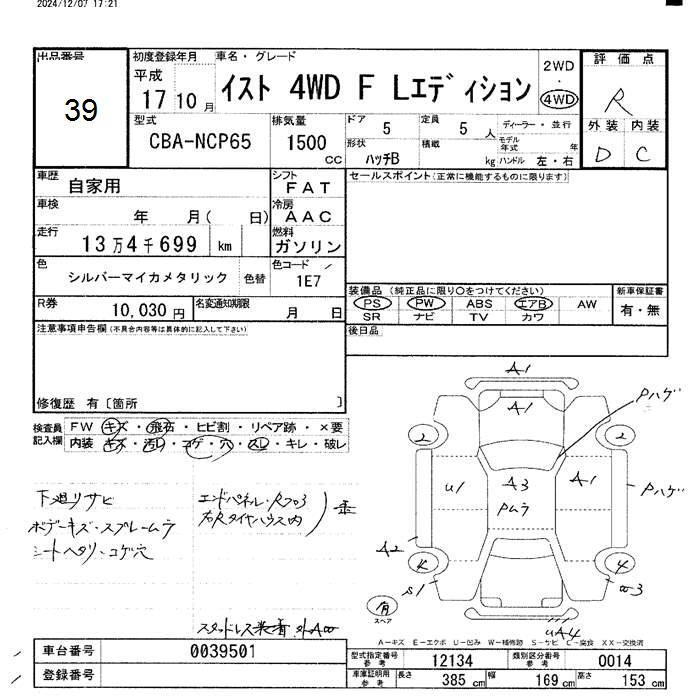 2024/12/07 17:21
出品番号
39
初度登録年月
平成
17 10 月
車名・グレード
イスト 4WD F Lエディション
2WD
・
4WD
評価点
R
外装 内装
D C
型式
CBA-NCP65
排気量
1500
CC
ドア 5
定員 5 人
ディーラー・並行
モデル年式 年
形状 ハッチB
積載 kg
ハンドル 左・右
車歴
自家用
シフト
FAT
セールスポイント(正常に機能するものに限ります)
車検
年 月( 日)
冷房
AAC
走行
13万4千699 km
燃料
ガソリン
色
シルバーマイカメタリック
色替
色コード
1E7
装備品(純正品に限り○をつけてください)
PS PW ABS エアB AW
SR ナビ TV カワ
新車保証書
有・無
R券
10,030 円
名変通知期限
月 日
後日品
注意事項申告欄(不具合内容等は具体的に記入して下さい)
修復歴 有〔箇所 〕
検査員記入欄
FW キズ・飛石・ヒビ割・リペア跡・×要
内装 キズ・汚レ・コゲ・穴・スレ・キレ・破レ
下廻リサビ
ボデーキズ・スプレームラ
シートヘタリ・コゲ穴
エンドパネル・Rフロア
右Rタイヤハウス内
スタッドレス装着
A1
A1
Pハゲ
2
2
U1
A3
Pムラ
A1
Pハゲ
A2
4
4
S1
有
スペア
UA4
A−キズ E−エクボ U−凹み W−補修跡 S−サビ C−腐食 XX−交換済
車台番号
0039501
登録番号
型式指定番号 参考
12134
類別区分番号 参考
0014
車庫証明用 参考
長さ 385 cm
幅 169 cm
高さ 153 cm